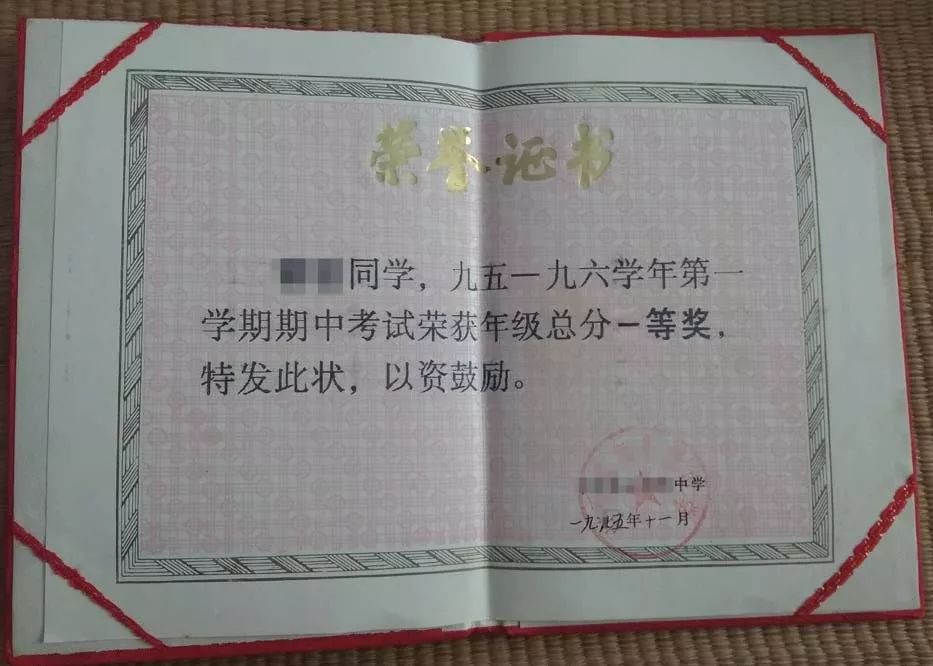 荣誉证书
同学，九五一九六学年第一
学期期中考试荣获年级总分一等奖，
特发此状，以资鼓励。
中学
一九九五年十一月